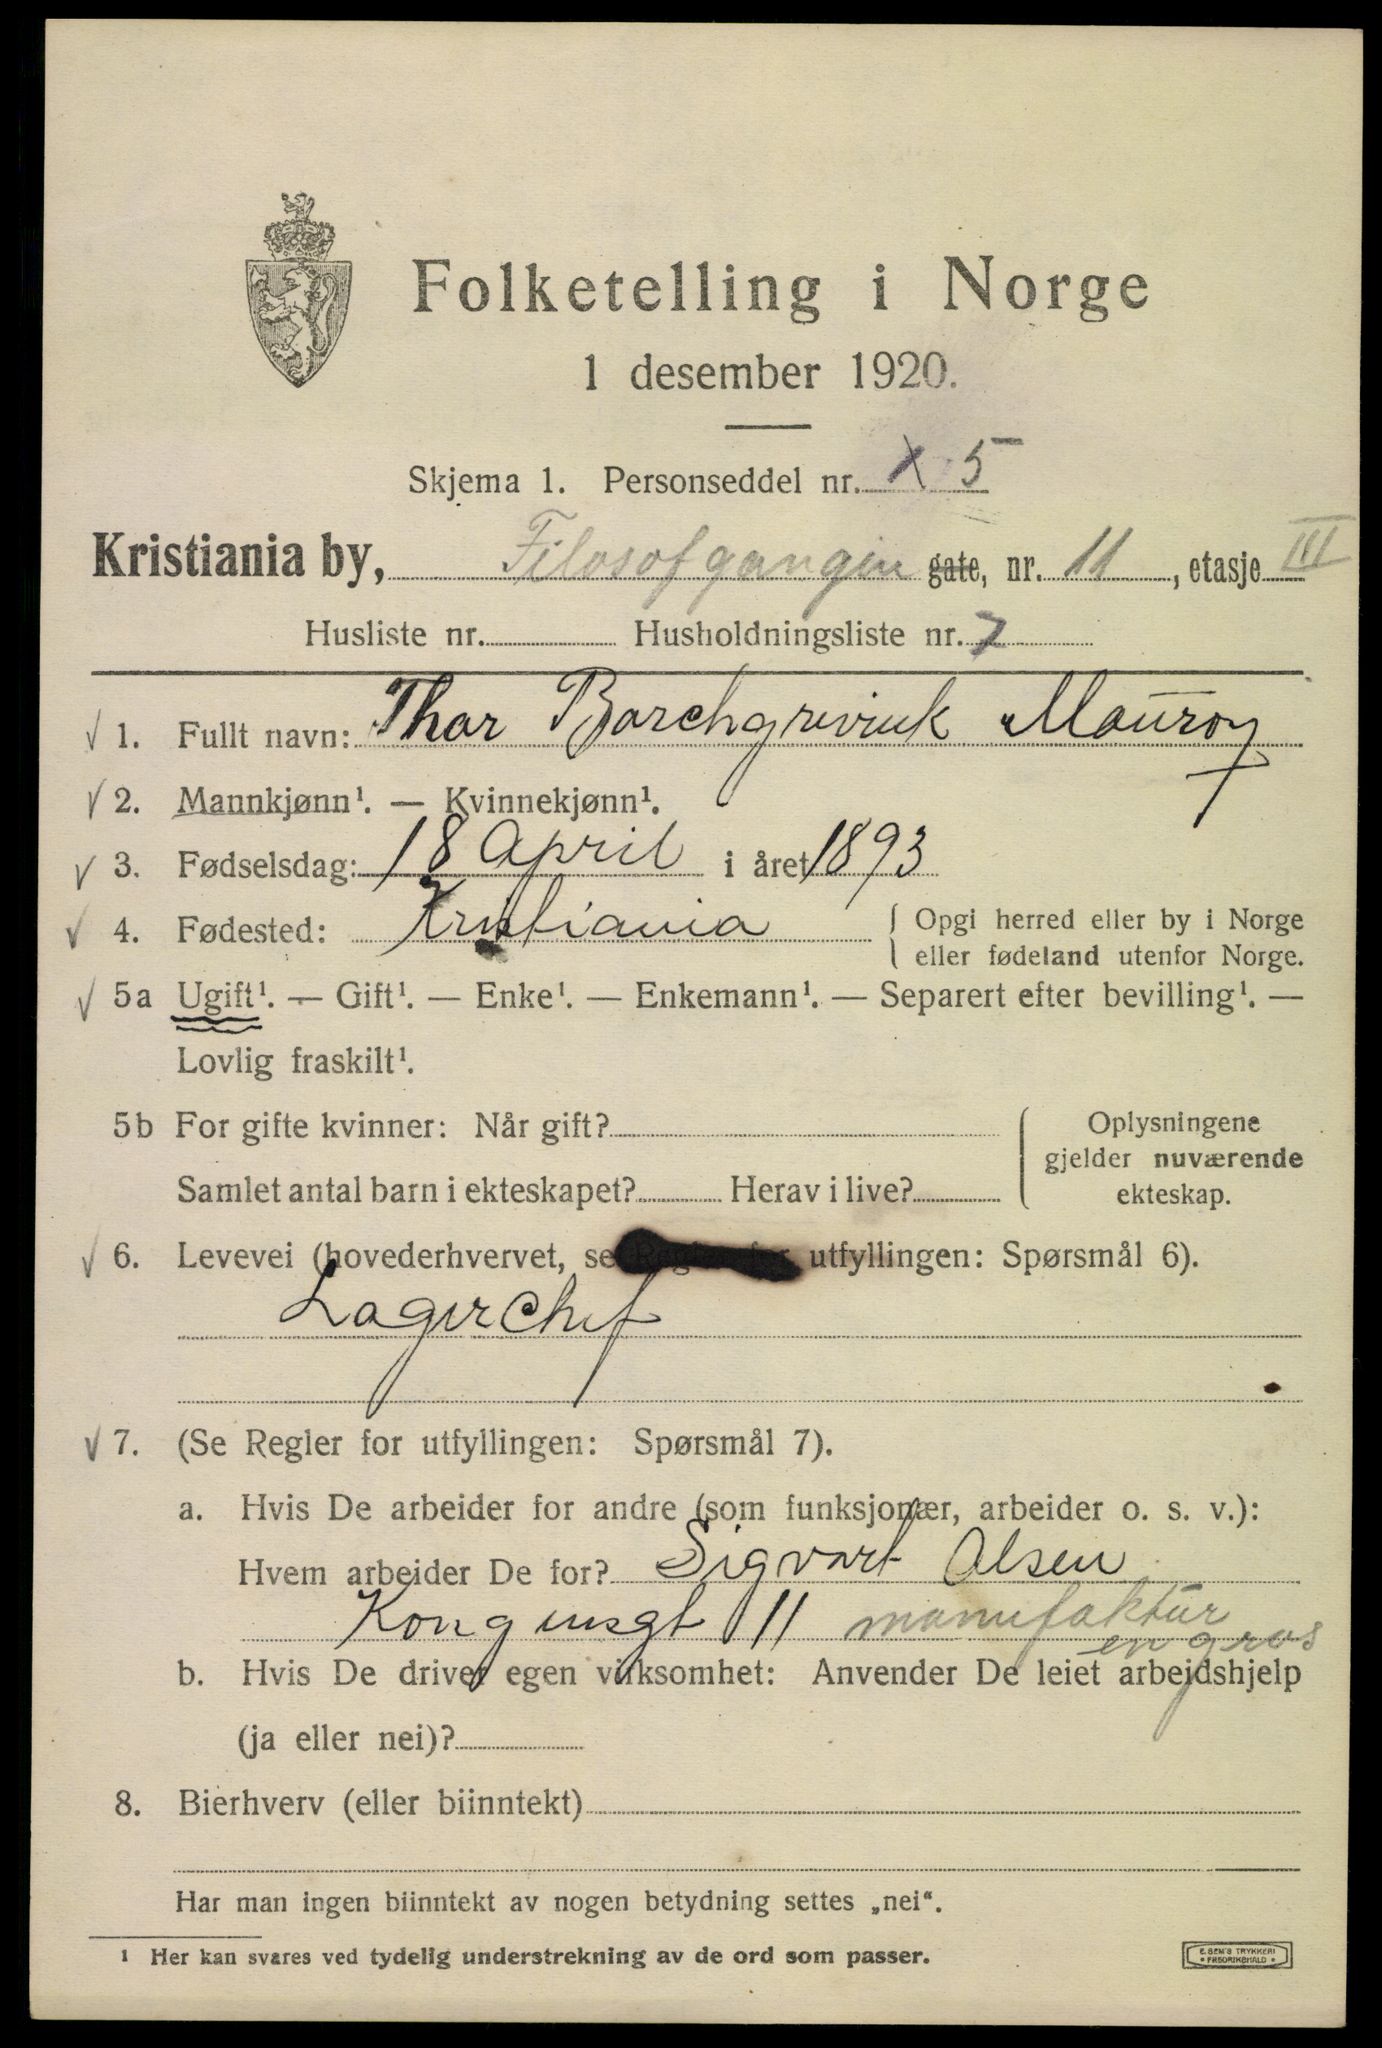 Folketelling i Norge
1 desember 1920.
Skjema 1. Personseddel nr. X 5
Kristiania by, Filosofgangen gate, nr. 11, etasje III
Husliste nr. Husholdningsliste nr. 7
√ 1. Fullt navn: Thor Borchgrevink Mouroy
√ 2. Mannkjønn¹. — Kvinnekjønn¹.
√ 3. Fødselsdag: 18 April i året 1893
√ 4. Fødested: Kristiania { Opgi herred eller by i Norge
eller fødeland utenfor Norge.
√ 5a Ugift¹. — Gift¹. — Enke¹. — Enkemann¹. — Separert efter bevilling¹. —
Lovlig fraskilt¹.
5b For gifte kvinner: Når gift?
Samlet antal barn i ekteskapet? Herav i live?
Oplysningene
gjelder nuværende
ekteskap.
√ 6. Levevei (hovederhvervet, se Regler for utfyllingen: Spørsmål 6).
Lagerchef
√ 7. (Se Regler for utfyllingen: Spørsmål 7).
a. Hvis De arbeider for andre (som funksjonær, arbeider o. s. v.):
Hvem arbeider De for? Sigvart Olsen
Kongensgt 11 manufaktur
en gros
b. Hvis De driver egen virksomhet: Anvender De leiet arbejdshjelp
(ja eller nei)?
8. Bierhverv (eller biinntekt)
Har man ingen biinntekt av nogen betydning settes „nei“.
¹ Her kan svares ved tydelig understrekning av de ord som passer.
E. SEM'S TRYKKERI
• FREDRIKSHALD •